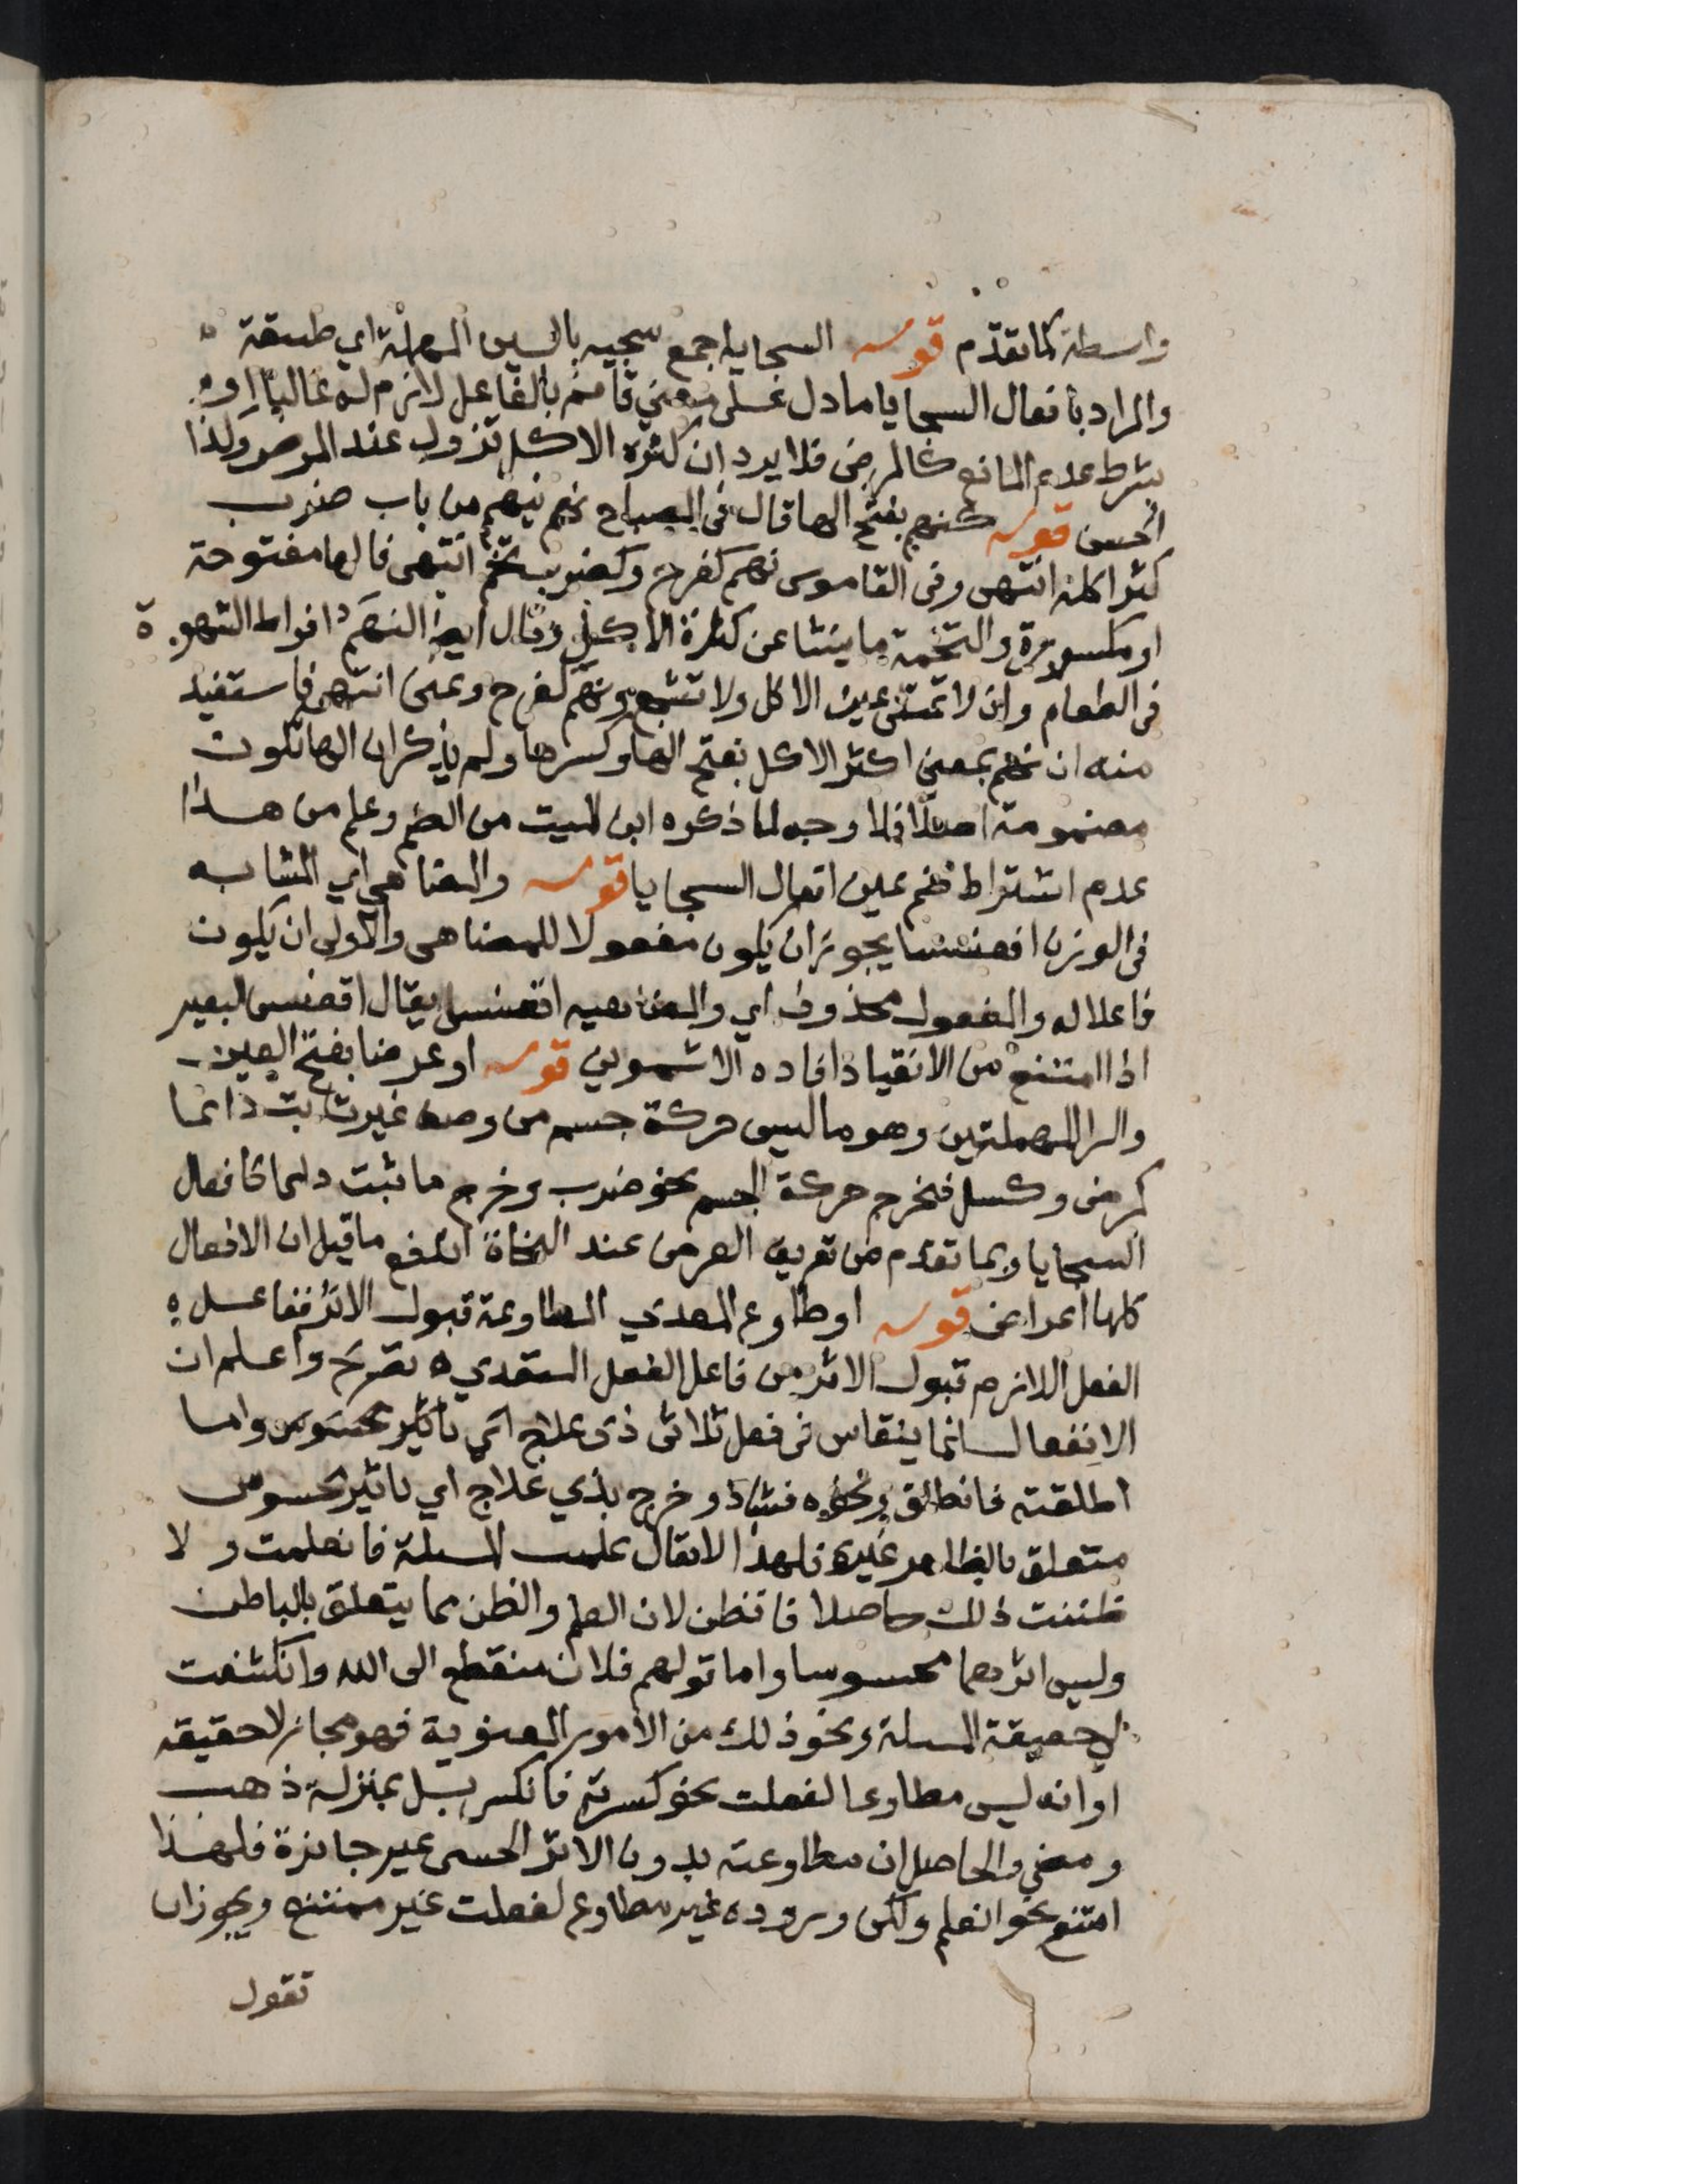 واسطة كما تقدم قوله السجايا جمع سجيه بالسين المهملة اي طبيعة
والمراد بافعال السجايا ما دل على معني قائم بالفاعل لازم له غالبا او
بشرط عدم المانع كالمرض فلا يرد ان كثرة الاكل تزول عند المرض ولذا
احسن قوله كنهم بفتح الها قال في المصباح نهم ينهم من باب ضرب
كثر اكله انتهى وفي القاموس نهم كفرح وكضرب تخم انتهى فالها مفتوحة
او مكسورة والتخمة ما ينشا عن كثرة الاكل وقال ايضا النهم افراط الشهوة
في الطعام وان لا تمتلى عين الاكل ولا تشبع ونهم كفرح وعنى انتهى فاستفيد
منه ان نهم بمعني اكثر الاكل بفتح الها وكسرها ولم يذكر ان الها تكون
مضمومة اصلا فلا وجه لما ذكره ابن الميت من الضم وعلم من هذا
عدم اشتراط ضم عين افعال السجايا قوله والمضاهي اي المشابه
في الوزن اقعنسسا يجوز ان يكون مفعولا للمضاهى والاولى ان يكون
فاعلا له والمفعول محذوف اي والمضاهيه اقعنسس يقال اقعنسس البعير
اذا امتنع من الانقياد افاده الاشموني قوله او عرضا بفتح العين
والرا المهملتين وهو ما ليس حركة جسم من وصف غير ثابت دائما
كمرض وكسل فخرج حركة الجسم نحو ضرب وخرج ما ثبت دائما كافعال
السجايا وبما تقدم من تعريف العرض عند النحاة اندفع ما قيل ان الافعال
كلها اعراض قوله او طاوع المعدي المطاوعة قبول الاثر ففاعل
الفعل اللازم قبول الاثر من فاعل الفعل المتعدي ه تصريح واعلم ان
الانفعال انما ينقاس في فعل ثلاثى ذى علاج اي تاثير محسوس واما
اطلقته فانطلق ونحوه فشاذ وخرج بذي علاج اي تاثير محسوس
متعلق بالظاهر غيره فلهذا لا يقال علمت المسئلة فانعلمت ولا
ظننت ذلك حاصلا فانظن لان العلم والظن مما يتعلق بالباطن
وليس اثرهما محسوسا واما قولهم فلان منقطع الى الله وانكشفت
لي حقيقة المسئلة ونحو ذلك من الامور المعنوية فهو مجاز لا حقيقه
او انه ليس مطاوعا لفعلت نحو كسرته فانكسر بل بمنزلة ذهب
ومضي والحاصل ان مطاوعته بدون الاثر الحسى غير جائزة فلهذا
امتنع نحو انعلم ولكن وروده غير مطاوع لفعلت غير ممتنع ويجوز ان
تقول